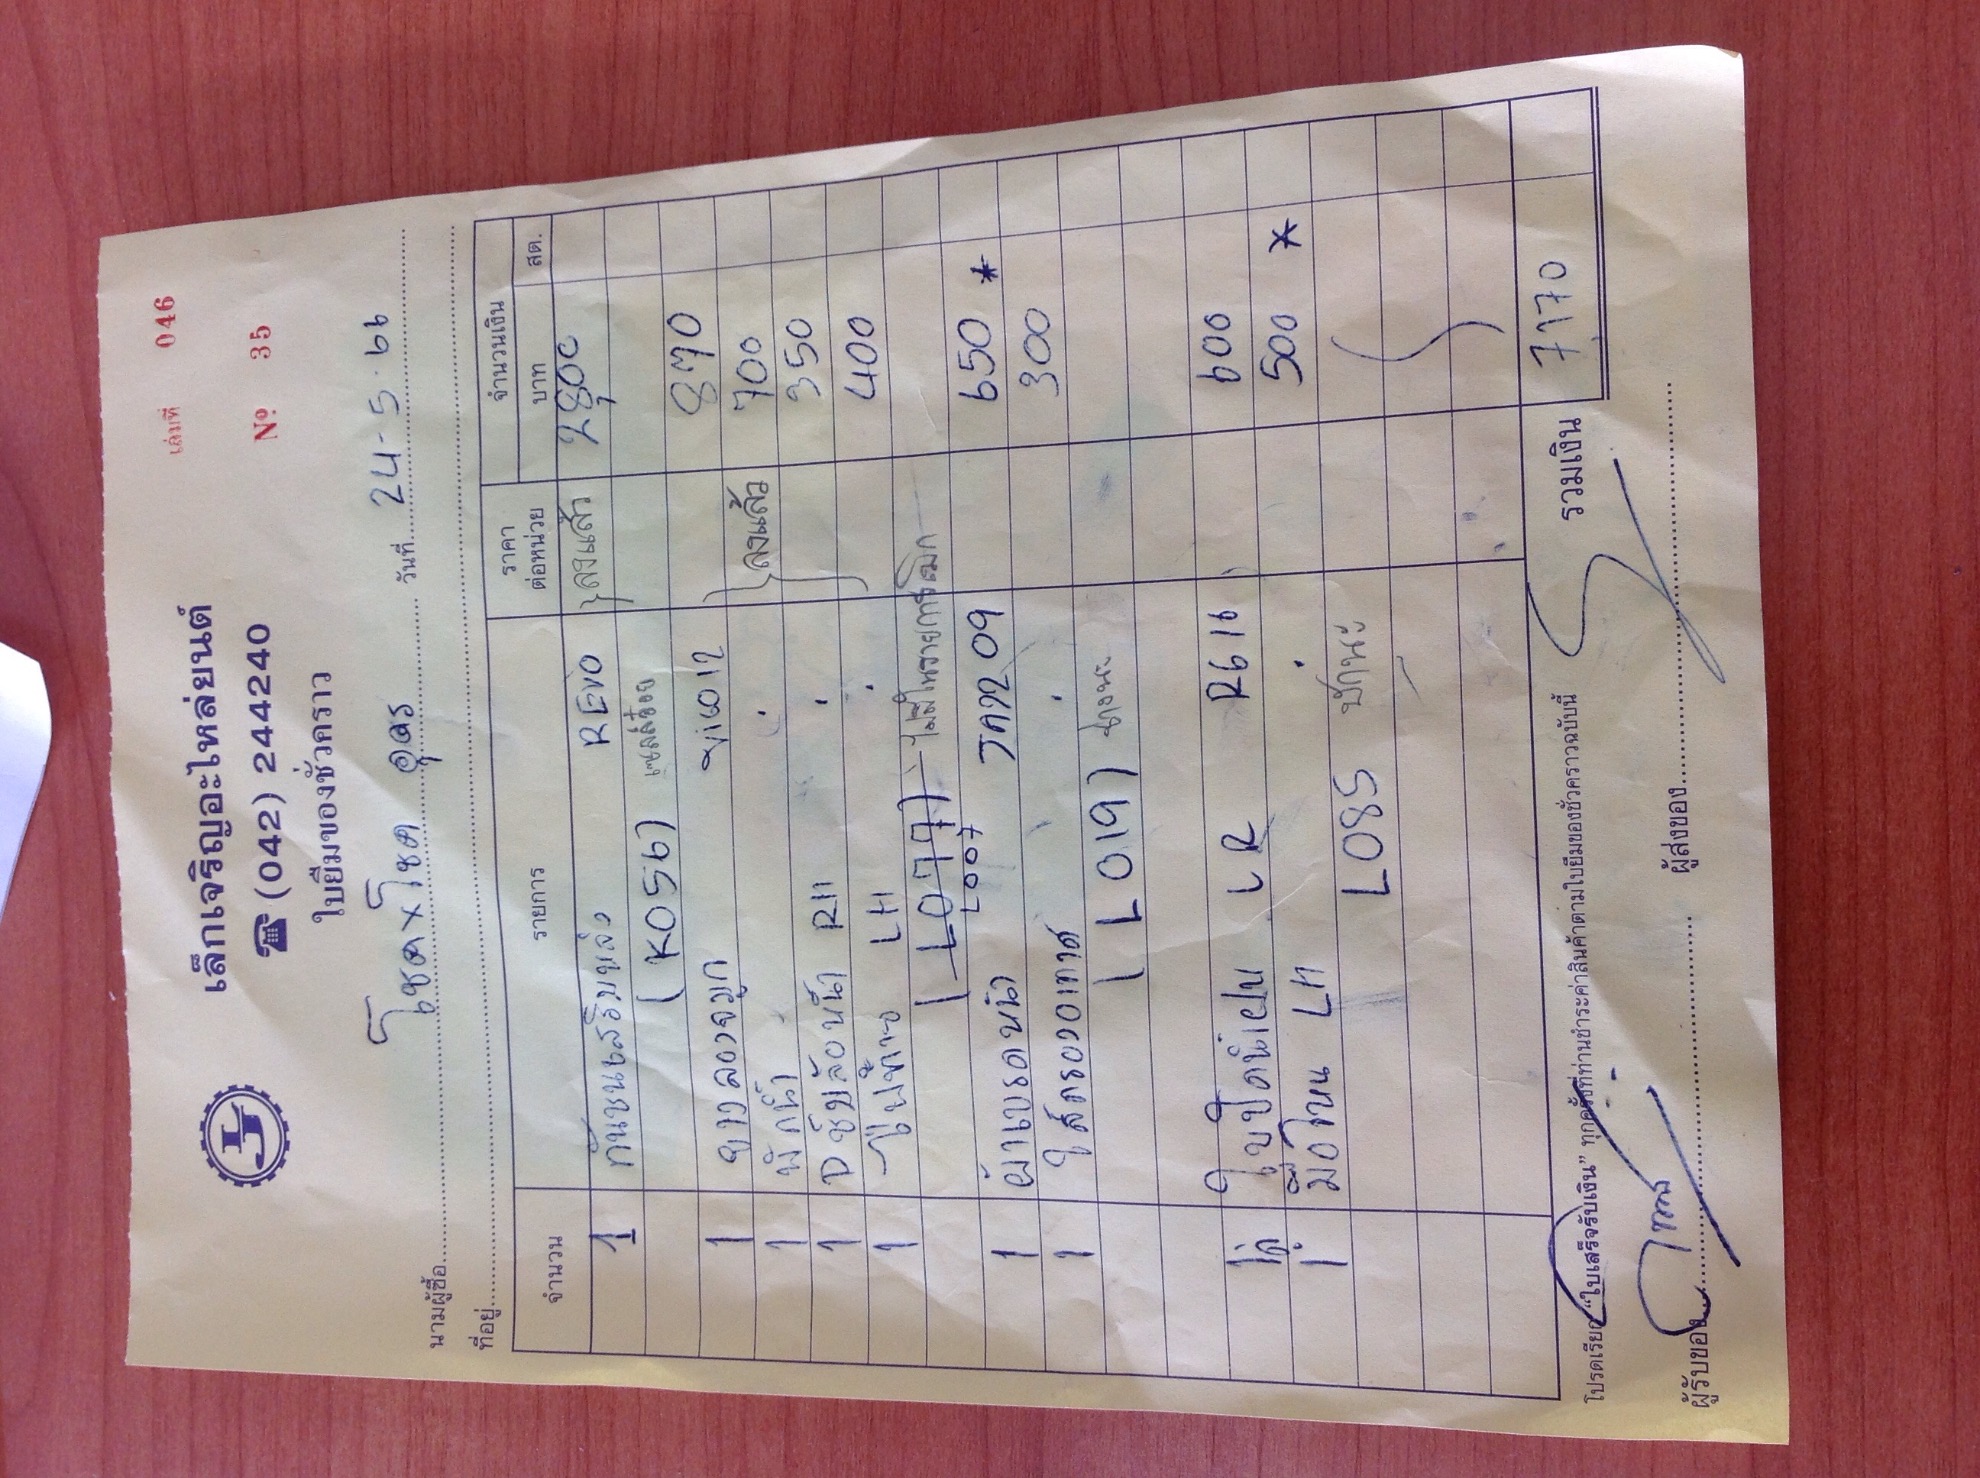 เล่มที่ 046
เล็กเจริญอะไหล่ยนต์
☎ (042) 244240
Nº 35
ใบยืมของชั่วคราว
นามผู้ซื้อ โชค x โชค อุดร วันที่ 24-5-66
ที่อยู่
จำนวน รายการ ราคาต่อหน่วย จำนวนเงิน บาท สต.
1 กันชนเสริมหลัง REVO ลงแล้ว 2800
(K0567)
1 ยางลองจมูก 870
1 700
1 RH 350
1 LH ลงแล้ว 400
(L077) ไม่มีในรายการเบิก
L007
1 ผ้าเบรดหน้า 09 650 *
1 ไส้กรอง 300
(L019)
ใบปัดน้ำฝน LR R616 600
1 LH 500 *
L085
รวมเงิน 7170
โปรดเรียก "ใบเสร็จรับเงิน" ทุกครั้งที่ท่านชำระค่าสินค้าตามใบยืมของชั่วคราวฉบับนี้
ผู้รับของ ผู้ส่งของ